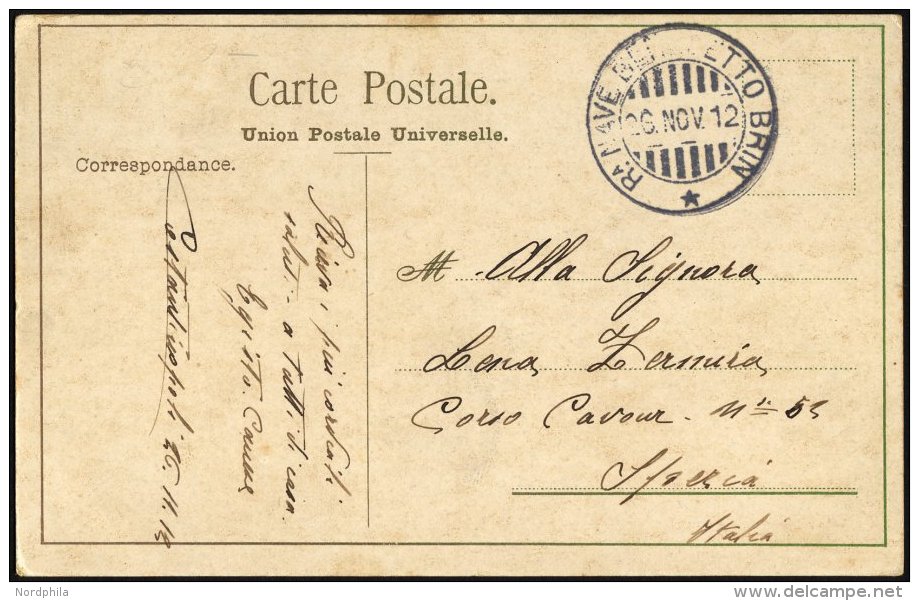 Carte Postale.
Union Postale Universelle.
Correspondance.
Ra NAVE BENEDETTO BRIN
26. NOV. 12
Costantinopoli 26.11.12
i più cordiali
saluti a tutti di casa
Egisto
M. Alla Signora
Lena Zermira
Corso Cavour - N
Spezia
Italia
Nordphila
delcampe.net